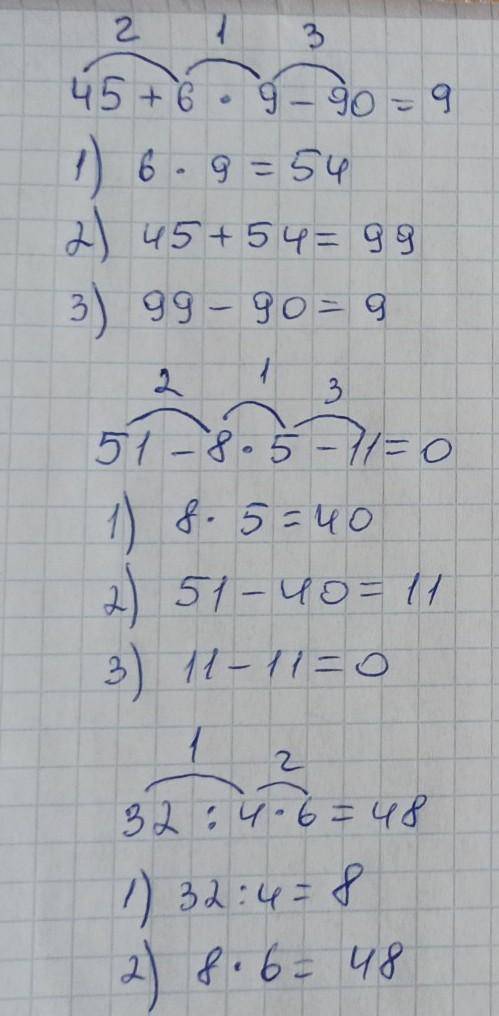 2 1 3
45 + 6 · 9 - 90 = 9
1) 6 · 9 = 54
2) 45 + 54 = 99
3) 99 - 90 = 9
2 1 3
51 - 8 · 5 - 11 = 0
1) 8 · 5 = 40
2) 51 - 40 = 11
3) 11 - 11 = 0
1 2
32 : 4 · 6 = 48
1) 32 : 4 = 8
2) 8 · 6 = 48